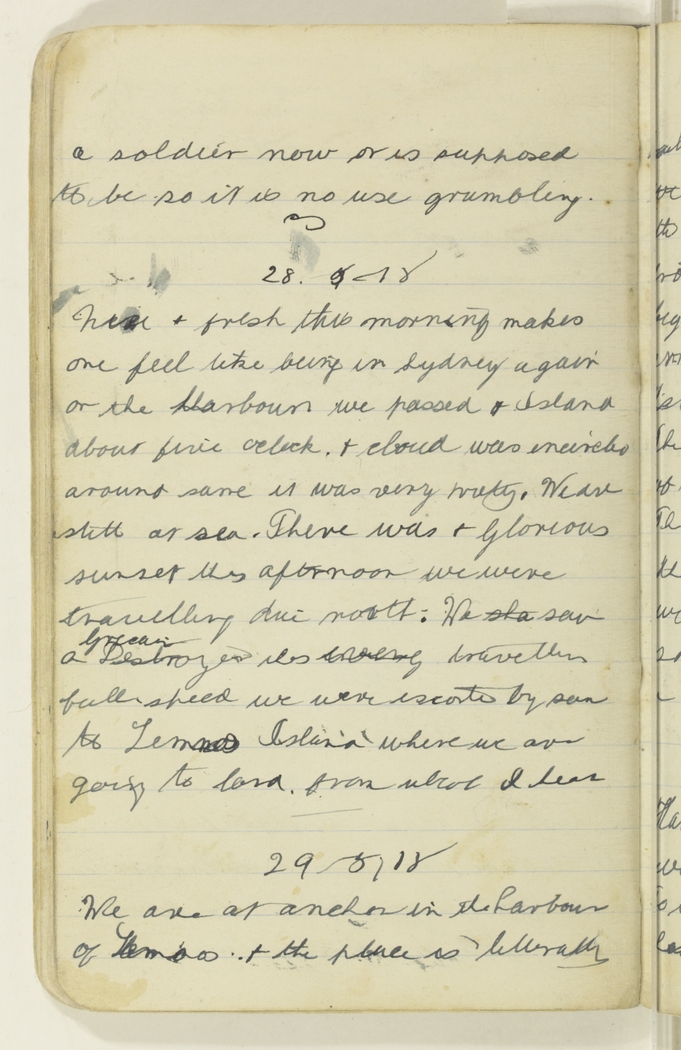 a soldier now or is supposed
to be so it is no use grumbling.
28. 8-18
Nice & fresh this morning makes
one feel like being in Sydney again
or the Harbour we passed & Island
about five oclock. & cloud was encircled
around same it was very pretty. We are
still at sea. There was & Glorious
sunset this afternoon we were
travelling due north: We sta saw
Grecian
a Destroyer travelling
full speed we were escorte by same
to Lemnos Island where we are
going to land. from what I hear
29
We are at anchor in the harbour
of Lemnos. & the place is litterally